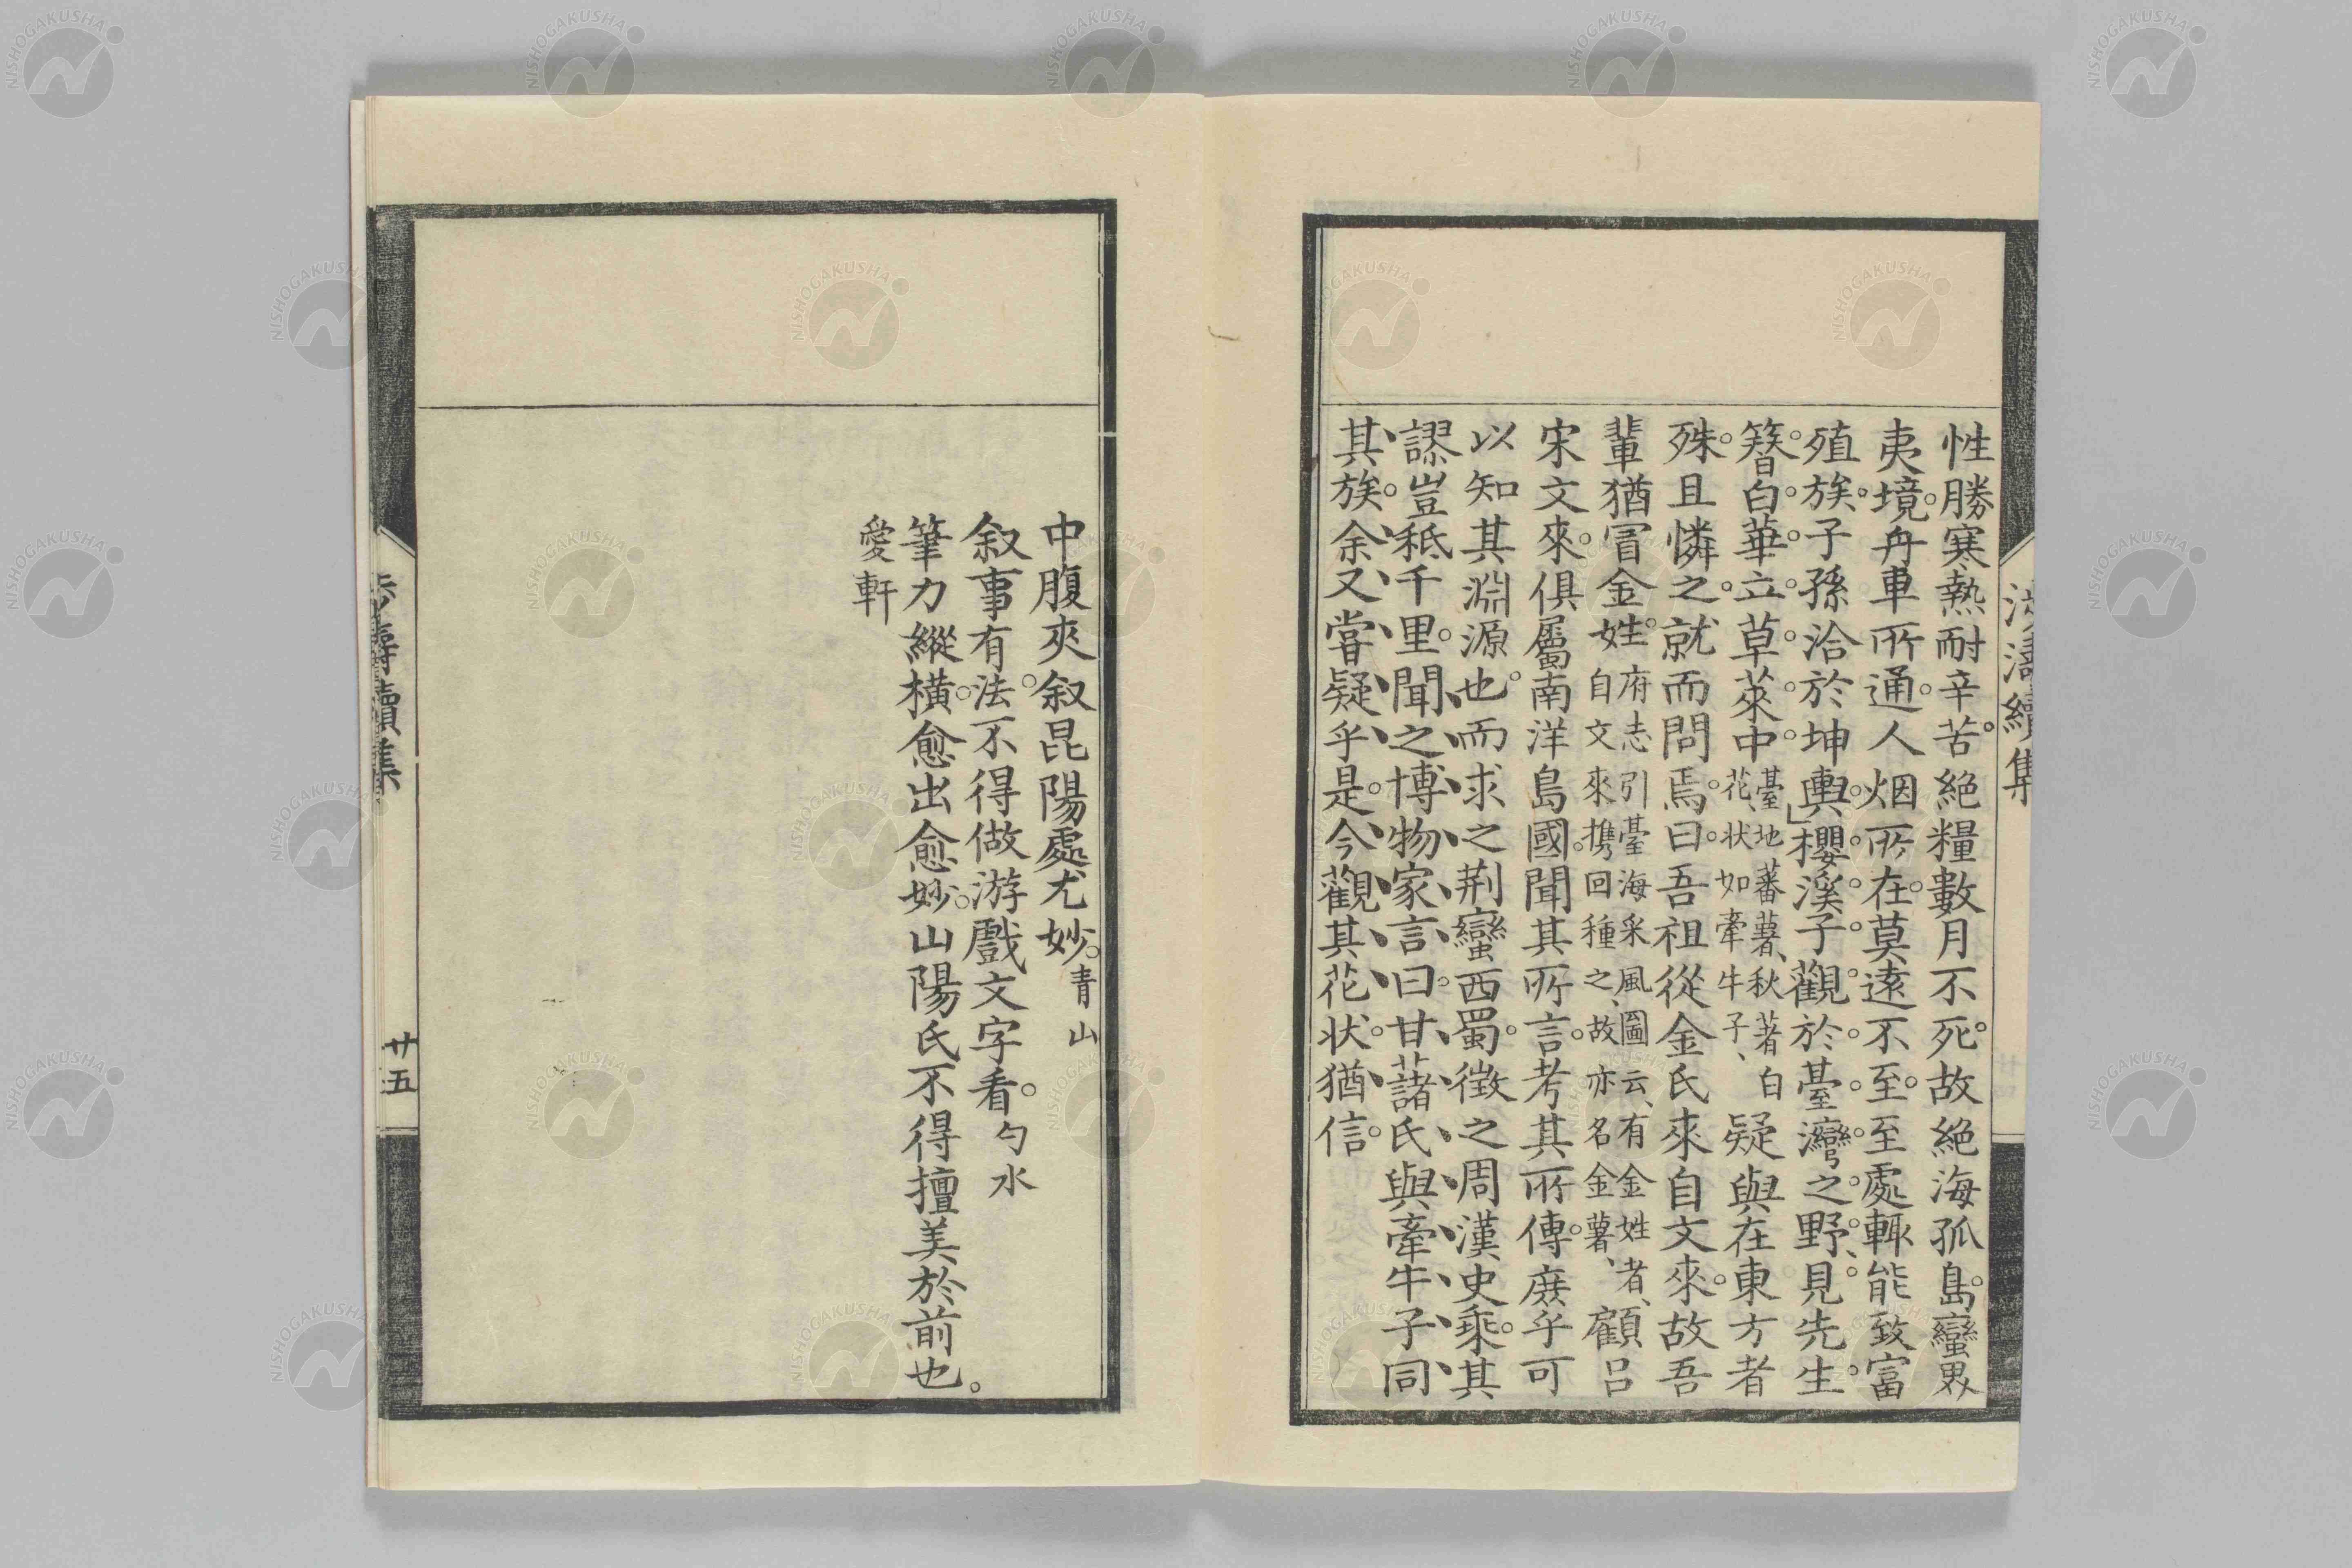 性勝寒熱耐辛苦。絶糧數月不死。故絶海孤島。蠻界
夷境。舟車所通。人烟所在。莫遠不至。至處輙能致富
殖族。子孫洽於坤輿。」櫻溪子觀於臺灣之野、見先生
簪白華立草萊中。臺地蕃薯、秋著白
花、状如牽牛子、疑與在東方者
殊。且憐之。就而問焉。曰。吾祖從金氏來自文來。故吾
輩猶冒金姓。府志引臺海采風圖云、有金姓者、
自文來携回種之、故亦名金薯、顧呂
宋文來。俱屬南洋島國。聞其所言。考其所傳。庶乎可
以知其淵源也。而求之荆蠻西蜀。徴之周漢史乘。其
謬豈秪千里。聞之博物家言曰。甘藷氏與牽牛子同
其族。余又嘗疑乎是。今觀其花状。猶信。
涉濤續集
中腹夾叙昆陽處尤妙。青山
叙事有法。不得做游戲文字看。勺水
筆力縱橫。愈出愈妙。山陽氏不得擅美於前也。
愛軒
涉濤續集
廿五
NISHOGAKUSHA